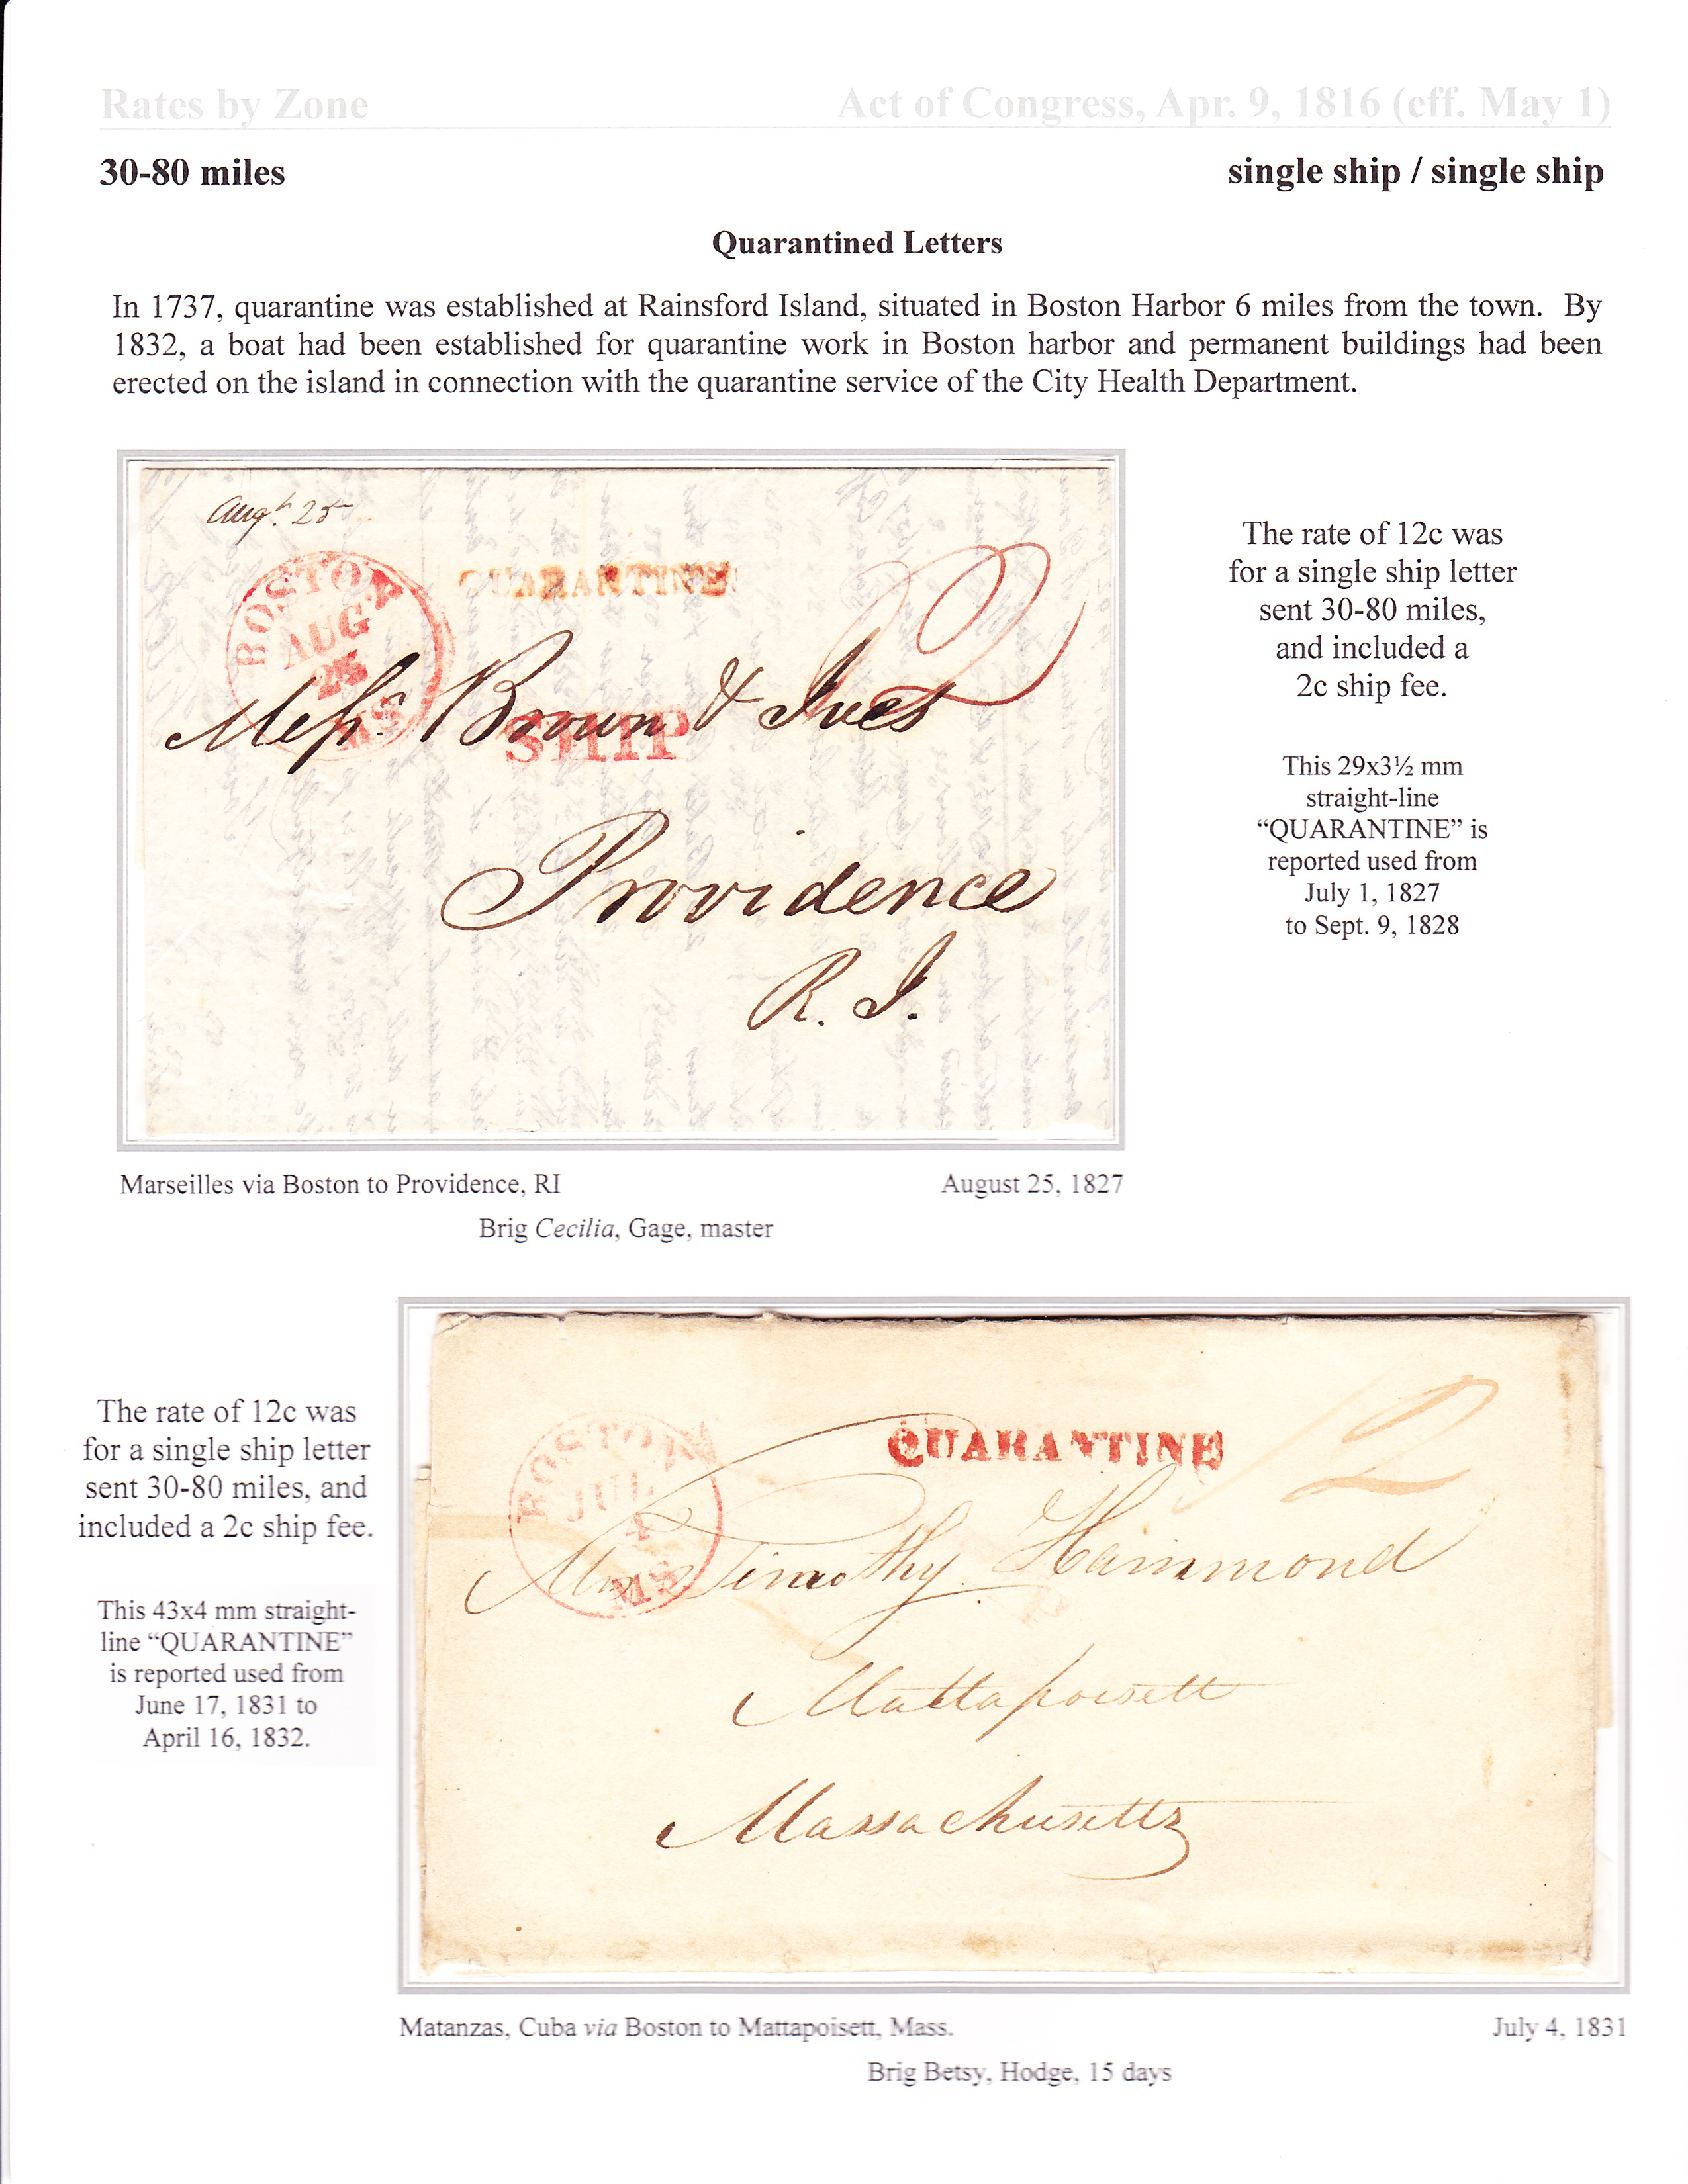 Rates by Zone Act of Congress, Apr. 9, 1816 (eff. May 1)
30-80 miles single ship / single ship
Quarantined Letters
In 1737, quarantine was established at Rainsford Island, situated in Boston Harbor 6 miles from the town. By
1832, a boat had been established for quarantine work in Boston harbor and permanent buildings had been
erected on the island in connection with the quarantine service of the City Health Department.
Augt. 25
BOSTON
AUG
25
MS
QUARANTINE
12
Messrs. Brown & Ives
SHIP
Providence
R. I.
The rate of 12c was
for a single ship letter
sent 30-80 miles,
and included a
2c ship fee.
This 29x3½ mm
straight-line
“QUARANTINE” is
reported used from
July 1, 1827
to Sept. 9, 1828
Marseilles via Boston to Providence, RI August 25, 1827
Brig Cecilia, Gage, master
The rate of 12c was
for a single ship letter
sent 30-80 miles, and
included a 2c ship fee.
This 43x4 mm straight-
line “QUARANTINE”
is reported used from
June 17, 1831 to
April 16, 1832.
BOSTON
JUL
4
MS
QUARANTINE
12
Timothy Hammond
Mattapoisett
Massachusetts
Matanzas, Cuba via Boston to Mattapoisett, Mass. July 4, 1831
Brig Betsy, Hodge, 15 days